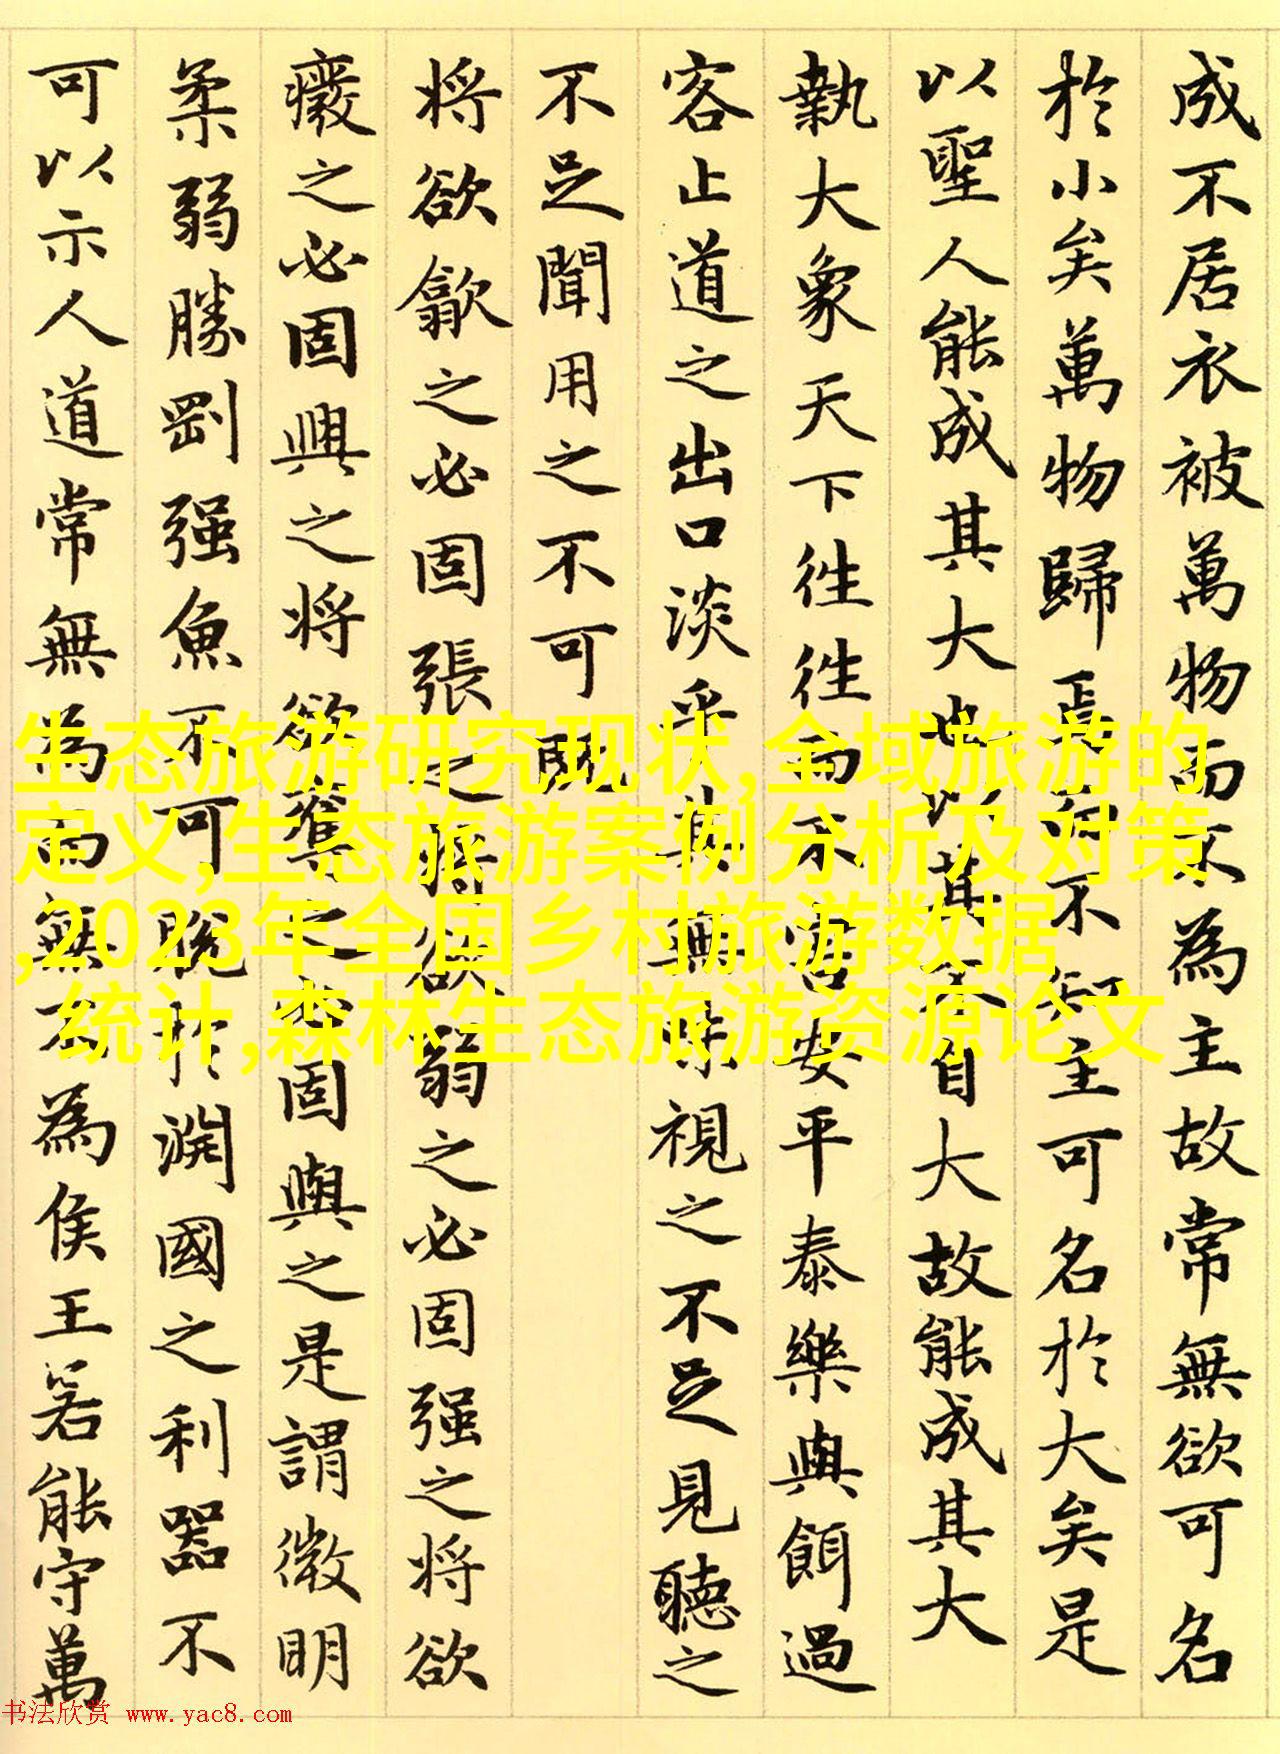 成不居衣被萬物而不為主故常無欲可名
於小矣萬物歸焉而不知主可名於大矣是
以聖人能成其大也以其不自大故能成其大
執大象天下往往而不害安平泰樂與餌過
客止道之出口淡乎其無味視之不足見聽之
不足聞用之不可既
将欲歙之必固張之将欲弱之必固强之将欲
癈之必固興之将欲奪之必固與之是謂微明
柔弱勝剛强魚不可脱於淵國之利器不
可以示人道常無為而無不為侯王若能守萬
生态旅游研究现状,全域旅游的
定义,生态旅游案例分析及对策
,2023年全国乡村旅游数据
统计,森林生态旅游资源论文
书法欣赏 www.yac8.com